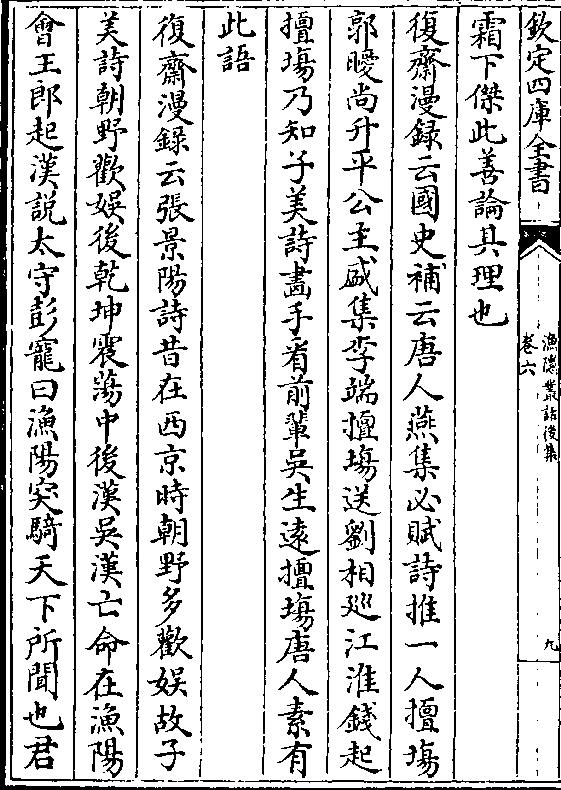 欽定四庫全書
漁隱叢話後集
卷六
九
霜下傑此善論其理也
復齋漫録云國史補云唐人燕集必賦詩推一人擅塲
郭曖尚升平公主盛集李端擅塲送劉相廵江淮錢起
擅塲乃知子美詩畫手㸔前輩吳生遠擅塲唐人素有
此語
復齋漫録云張景陽詩昔在西京時朝野多歡娱故子
美詩朝野歡娱後乾坤震蕩中後漢吳漢亡命在漁陽
會王郎起漢説太守彭寵曰漁陽突騎天下所聞也君